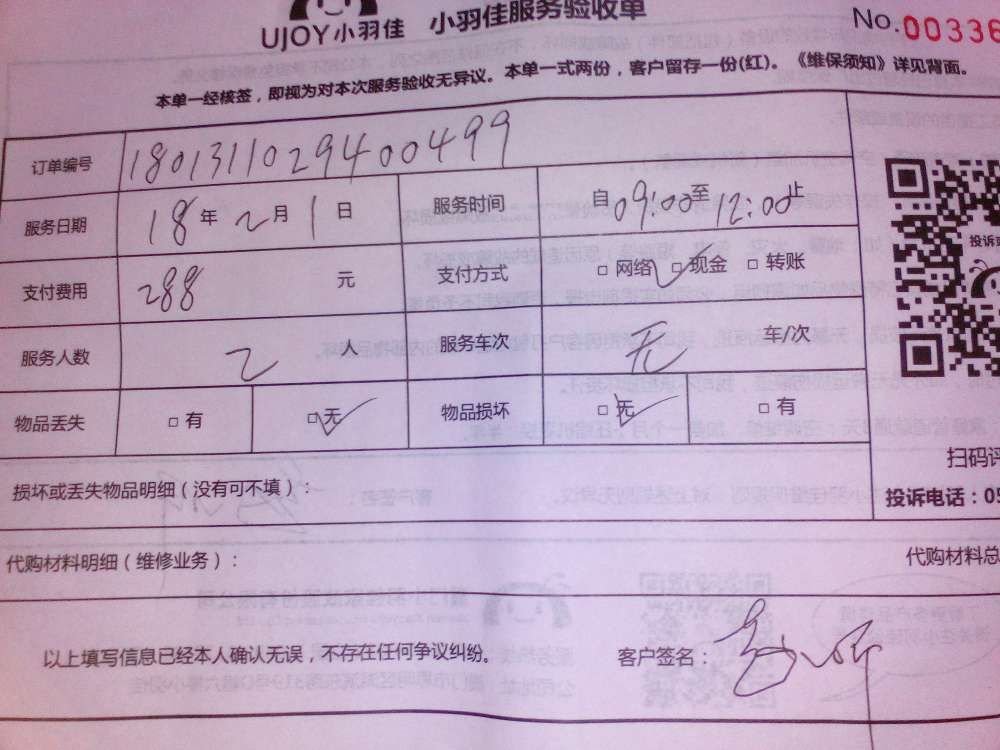 UJOY小羽佳 小羽佳服务验收单
No.00336
本单一经核签，即视为对本次服务验收无异议。本单一式两份，客户留存一份(红)。《维保须知》详见背面。
订单编号 1801311029400499
服务日期 18年2月1日 服务时间 自09:00至12:00止
支付费用 288元 支付方式 □网络 □现金 □转账
服务人数 2人 服务车次 无 车/次
物品丢失 □有 □无 物品损坏 □无 □有
投诉
扫码评
损坏或丢失物品明细（没有可不填）：
投诉电话：05
代购材料明细（维修业务）：
代购材料总
以上填写信息已经本人确认无误，不存在任何争议纠纷。
客户签名：